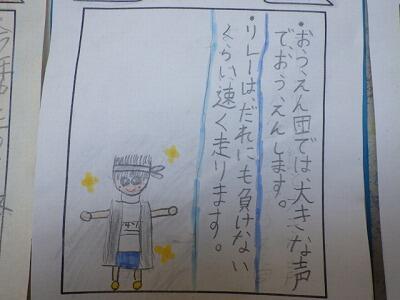 ・おうえん団では、大きな声
で、おうえんします。
・リレーは、だれにも負けない
くらい速く走ります。